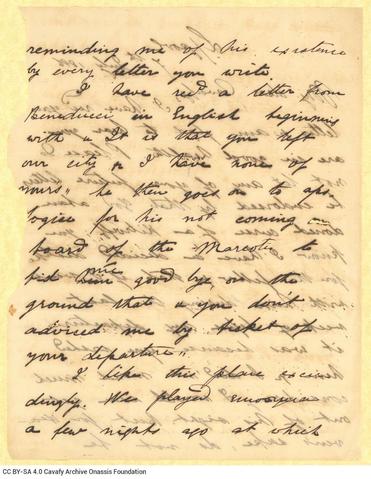 reminding me of his existence
by every letter you write.
I have recd a letter from
Benducci in English beginning
with "It is that you left
our city, I have none of
yours" he then goes on to apo-
logise for his not coming on
board of the Mareotis to
bid me good bye, on the
ground that "you don't
adviced me by ticket of
your departure".
I like this place excee
dingly. We played
a few nights ago at which
CC BY-SA 4.0 Cavafy Archive Onassis Foundation